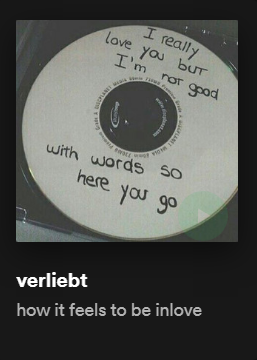 I really
love you but
I'm not good
with words so
here you go
verliebt
how it feels to be inlove